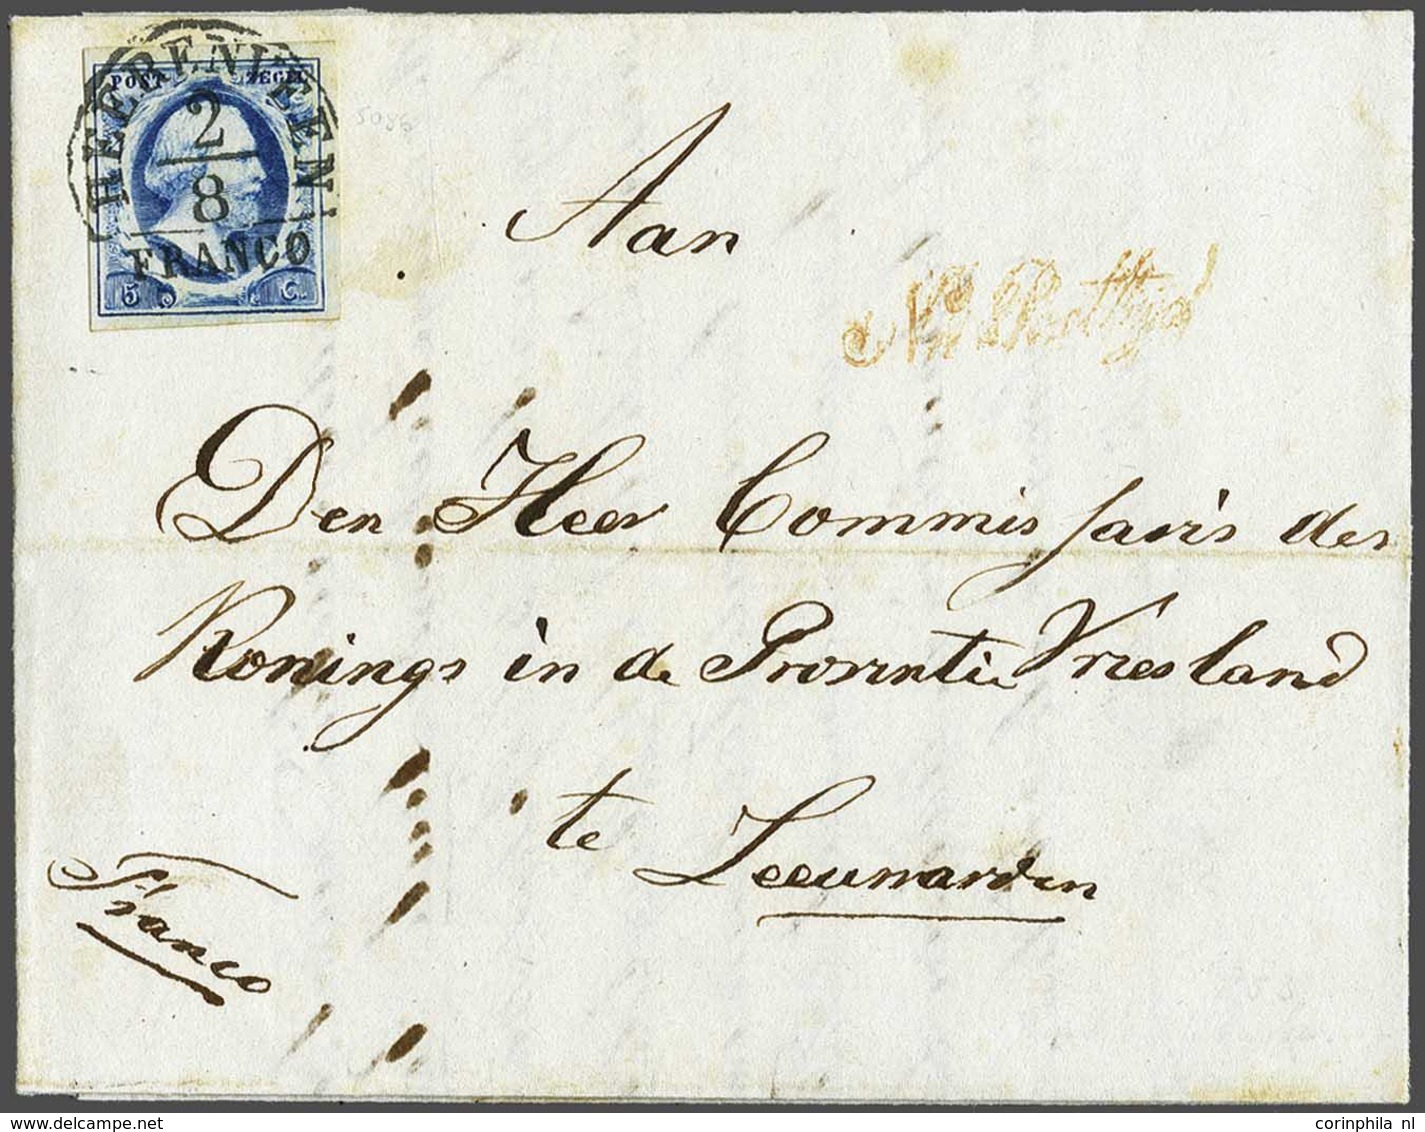 POST ZEGEL
HEERENVEEN
2
8
FRANCO
5 C.
5036
Aan
Na Posttijd
Den Heer Commissaris des
Konings in de Provintie Vriesland
te Leeuwarden
Franco
corinphila nl